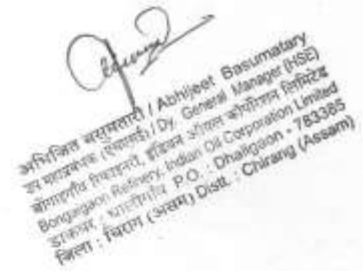 अभिजित बसुमतारी / Abhijeet Basumatary
उप महाप्रबंधक (एचएसई) / Dy. General Manager (HSE)
बोंगाईगाँव रिफाइनरी, इंडियन ऑयल कॉर्पोरेशन लिमिटेड
Bongaigaon Refinery, Indian Oil Corporation Limited
डाकघर : धालीगाँव P.O. : Dhaligaon - 783385
जिला : चिरांग (असम) Distt. : Chirang (Assam)